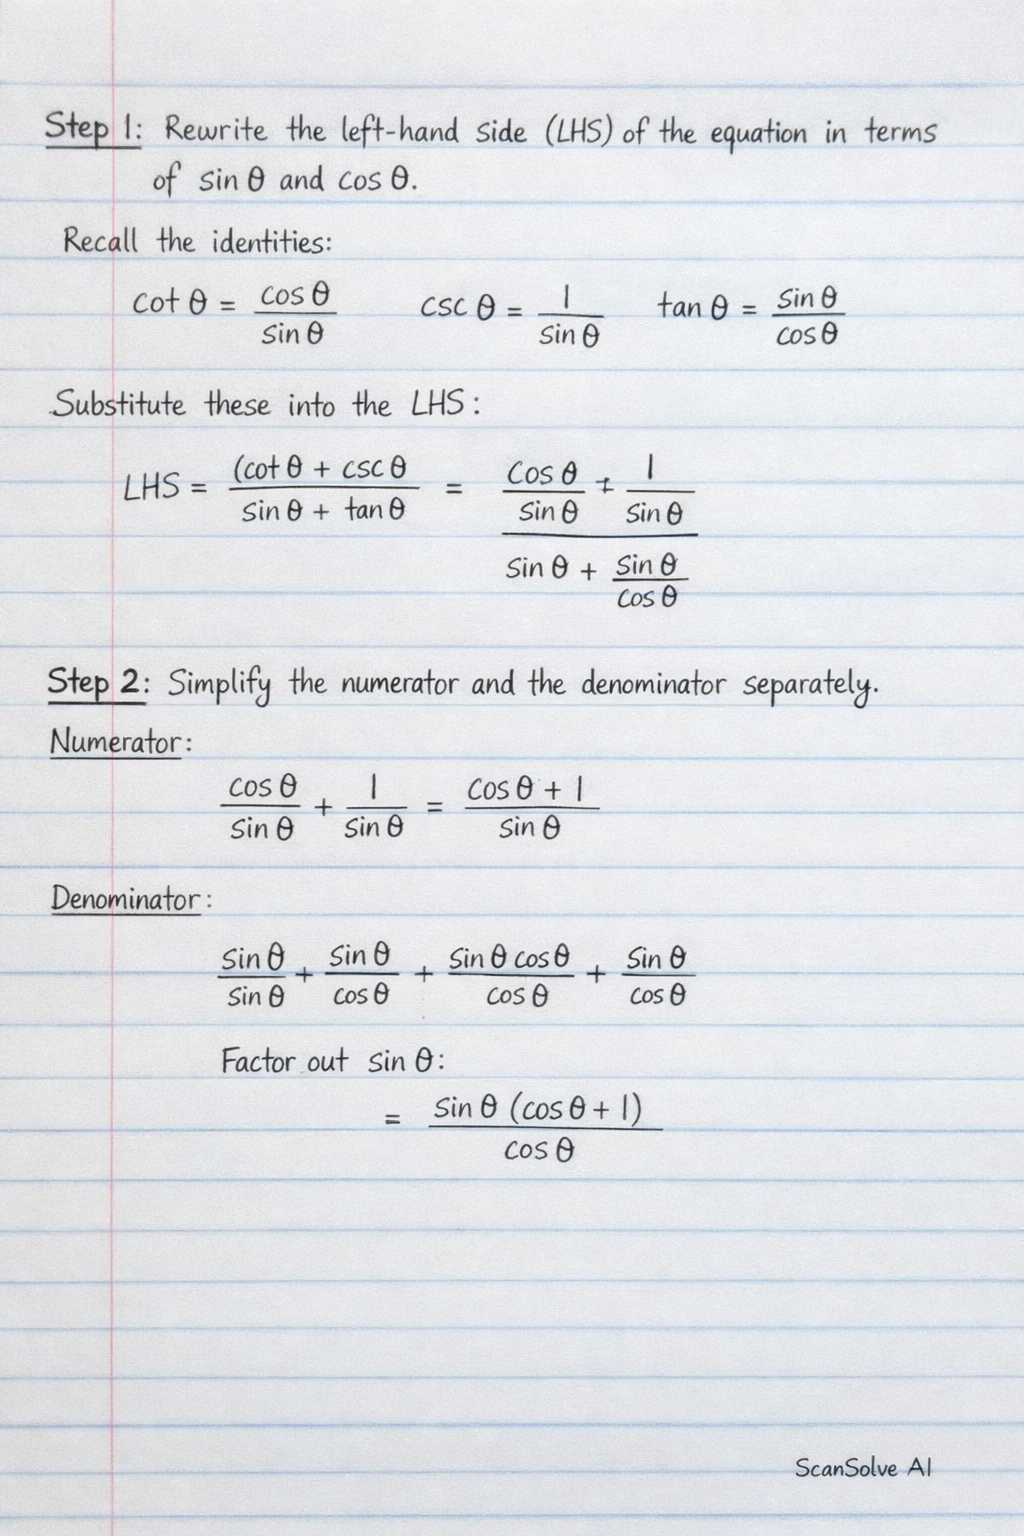 Step 1: Rewrite the left-hand side (LHS) of the equation in terms
of sin θ and cos θ.
Recall the identities:
cot θ = cos θ / sin θ    csc θ = 1 / sin θ    tan θ = sin θ / cos θ
Substitute these into the LHS:
LHS = (cot θ + csc θ / sin θ + tan θ = cos θ / sin θ + 1 / sin θ / sin θ + sin θ / cos θ
Step 2: Simplify the numerator and the denominator separately.
Numerator:
cos θ / sin θ + 1 / sin θ = cos θ + 1 / sin θ
Denominator:
sin θ / sin θ + sin θ / cos θ + sin θ cos θ / cos θ + sin θ / cos θ
Factor out sin θ:
= sin θ (cos θ + 1) / cos θ
ScanSolve AI